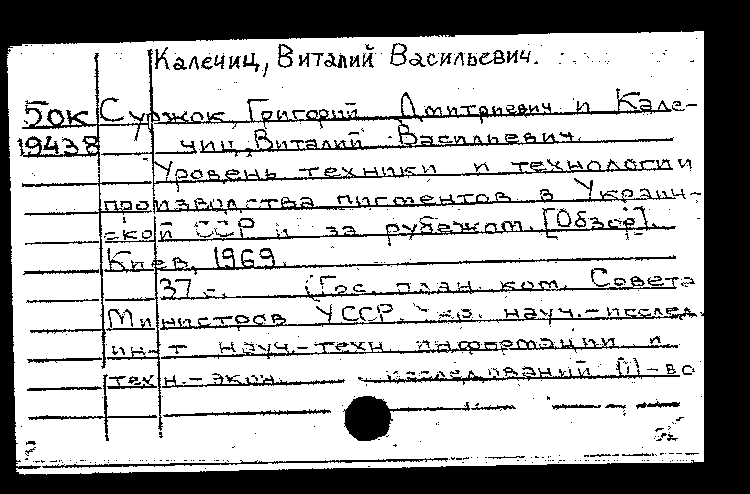 Калечиц, Виталий Васильевич.
5ок Суржок, Григорий Дмитриевич и Кале-
19438 чиц, Виталий Васильевич.
Уровень техники и технологии
производства пигментов в Украин-
ской ССР и за рубежом. [Обзор].
Киев, 1969.
37 с. (Гос. план. ком. Совета
Министров УССР. Укр. науч.-исслед.
ин-т науч.-техн. информации и
техн.-экон. исследований.